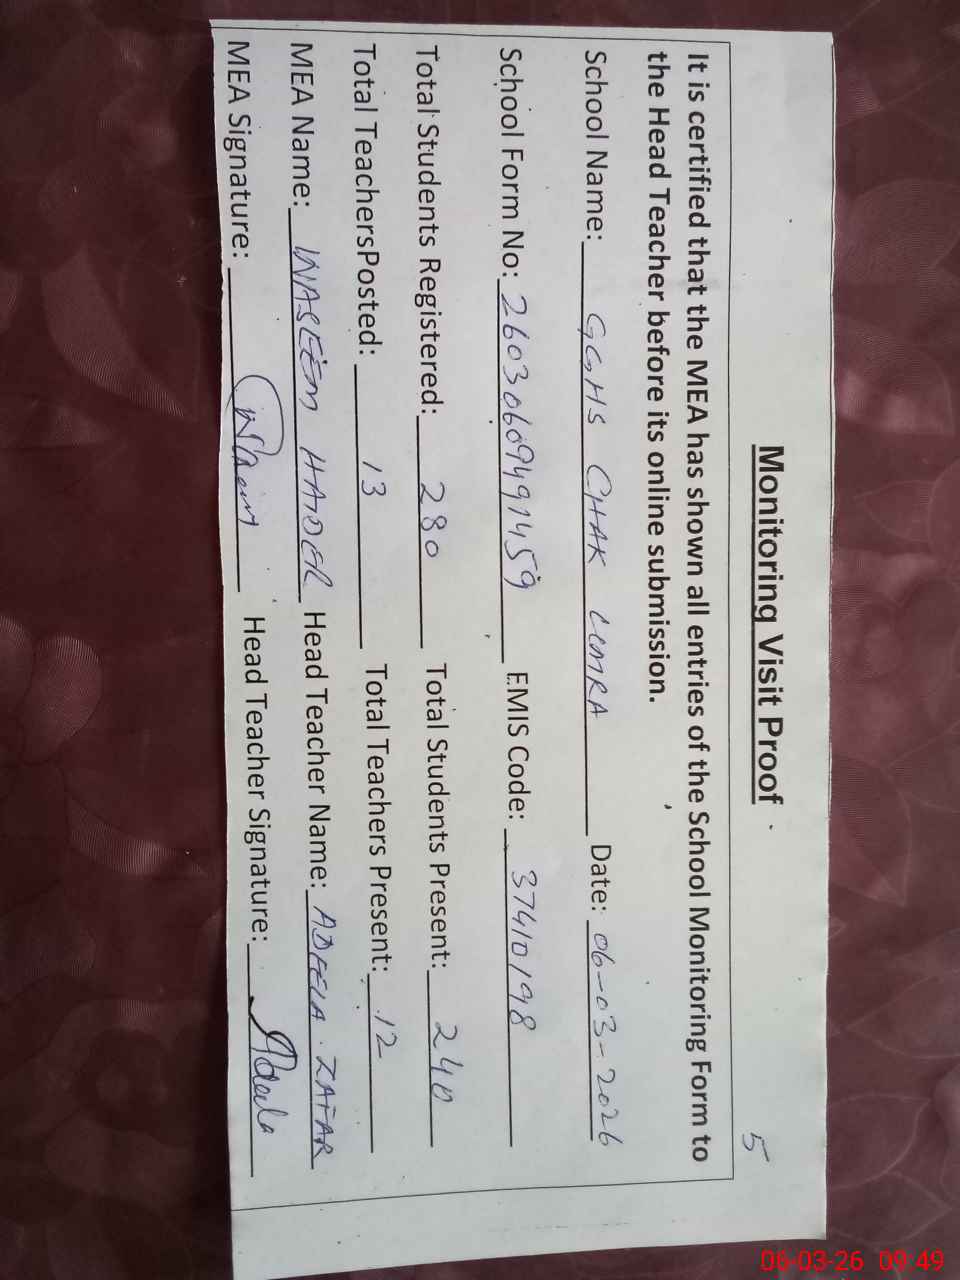 5
Monitoring Visit Proof
It is certified that the MEA has shown all entries of the School Monitoring Form to
the Head Teacher before its online submission.
School Name: GGHS CHAK LUMRA Date: 06-03-2026
School Form No: 2603060949491459 EMIS Code: 37410198
Total Students Registered: 280 Total Students Present: 240
Total TeachersPosted: 13 Total Teachers Present: 12
MEA Name: WASEEM HAIDER Head Teacher Name: ADEELA ZAFAR
MEA Signature: Waseem Head Teacher Signature: Adeela
06-03-26 09:49